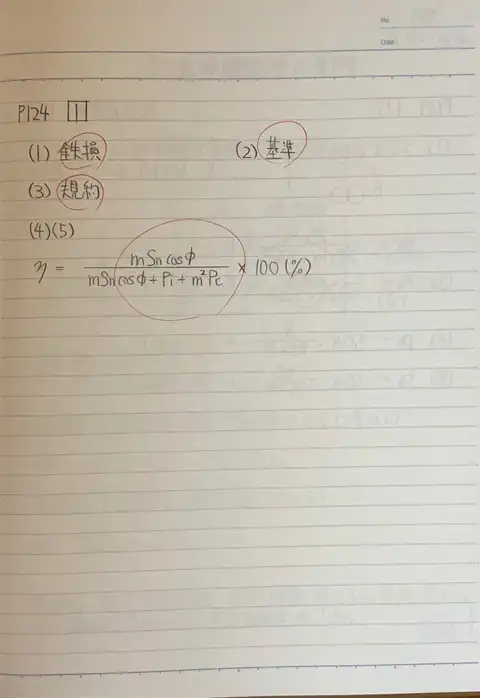 No.
Date
P124 1
(1) 鉄損 (2) 基準
(3) 規約
(4)(5)
η = mSn cosφ / mSn cosφ + Pi + m²Pc × 100 (%)